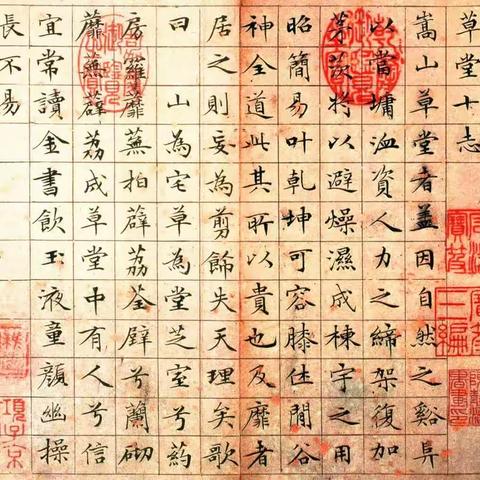 草堂十志
嵩山草堂者盖因自然之谿阜
以當墉洫資人力之締架復加
茅茨將以避燥濕成棟宇之用
昭簡易叶乾坤可容膝休閒谷
神全道此其所以貴也及靡者
居之則妄為剪飾失天理矣歌
曰 山為宅草為堂芝室兮葯
房羅蘼蕪拍薜荔荃壁兮蘭砌
蘼蕪薜荔成草堂中有人兮信
宜常讀金書飲玉液童顏幽操
長不易
項子京